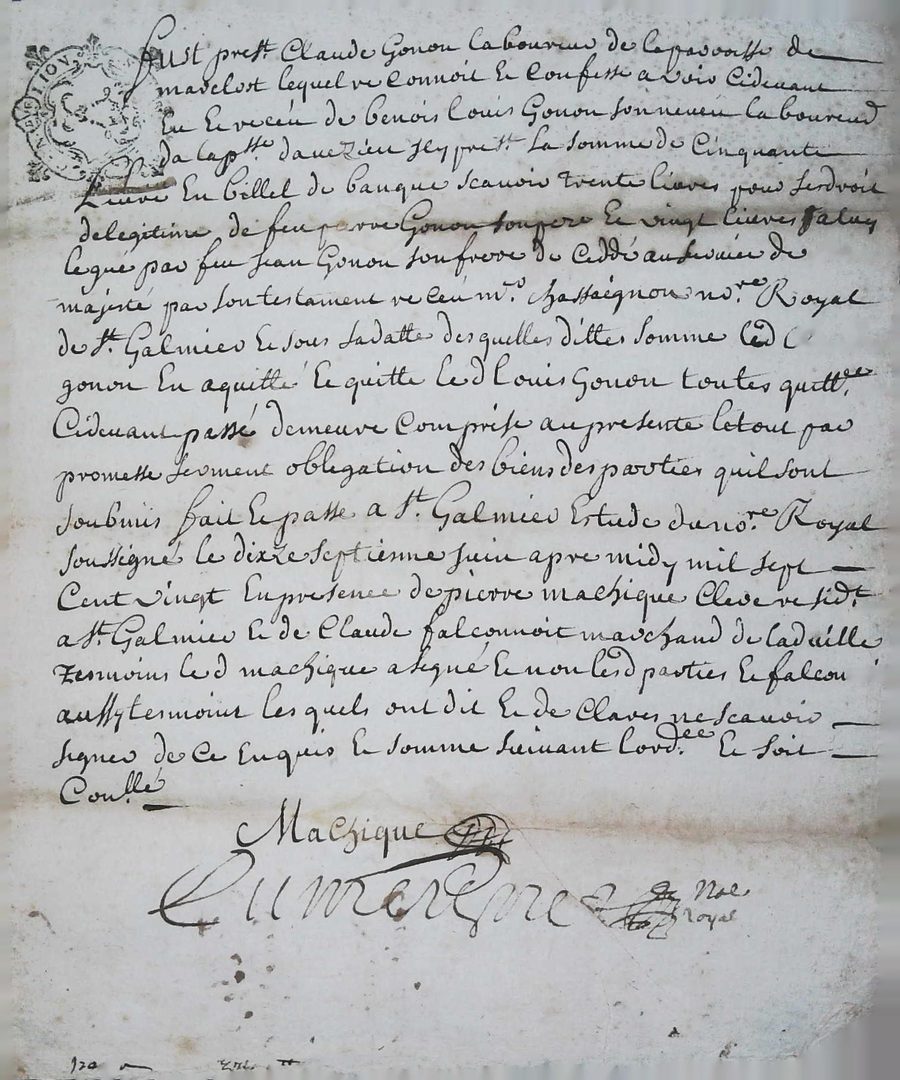 fust prest. Claude Gonon laboureur de la parroisse de
marclost lequel reconnoit et confesse avoir cidevant
Eu et receu de benoist louis Gonon son neveu laboureur
de la psse davezieu Icy prest. la somme de Cinquante
Livre En billet de banque scavoir trente livres pour ses droit
de legitime de feu pierre Gonon son pere et vingt livres a luy
legué par feu jean Gonon son frere deceddé au service de
majesté par son testament receu me. chassaignon nore. Royal
de St. Galmier et sous sa datte des quelles dittes somme led
gonon En a quitté et quitte led louis Gonon toutes quittce.
Cidevant passé demeure comprise au presente le tout par
promesse serment obblegation des biens des parties quil sont
soubmis fait et passe a St. Galmier Estude du nore. Royal
soussigné le dixze septienne juin apre midy mil sept
Cent vingt En presence de pierre machique Clerc residt.
a St. Galmier et de Claude falconnoit marchand de lad ville
tesmoins led machique a signé et non lesd parties et falcon
aussy tesmoint lesquels ont dit et declares ne scavoir
signer de ce Enquis et somme suivant lordee. et soit
Conllé
Machique
Noe
Royal